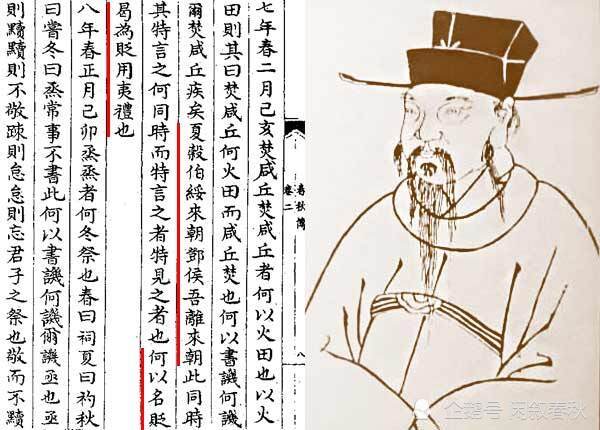 春秋傳
卷二
八
七年春二月己亥焚咸丘焚咸丘者何以火田也以火
田則其曰焚咸丘何火田而咸丘焚也何以書譏何譏
爾焚咸丘疾矣夏穀伯綏來朝鄧侯吾離來朝此同時
其特言之何同時而特言之者特見之者也何以名貶
曷為貶用夷禮也
八年春正月己卯烝烝者何冬祭也春曰祠夏曰礿秋
曰嘗冬曰烝常事不書此何以書譏何譏爾譏亟也亟
則黷黷則不敬疎則怠怠則忘君子之祭也敬而不黷
企鹅号 叙春秋